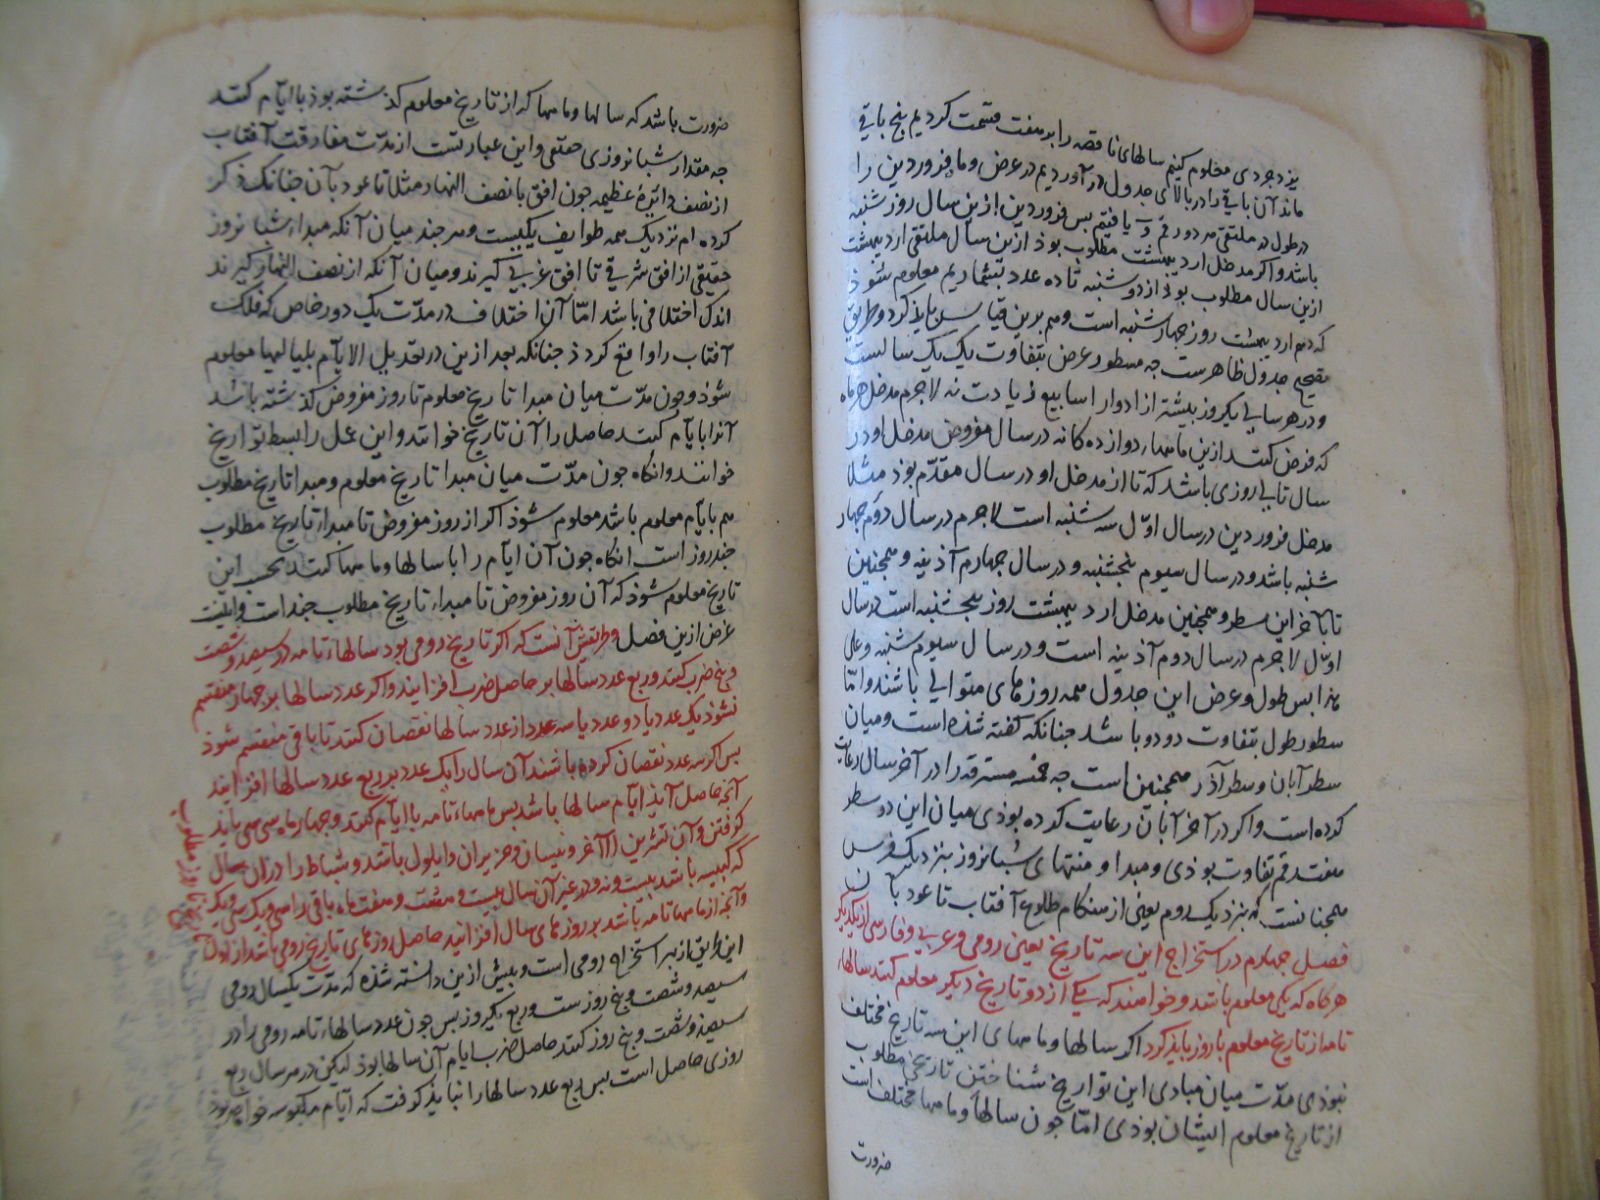 یزدجردی معلوم کنیم سالهای ناقصه را بر هفت قسمت کردیم پنج باقی
ماند آن باقی را در بالای جدول در آوردیم در عرض و ماه فروردین را
در طول در ملتقی هر دو رقم یافتیم بس فروردین ازین سال روز شنبه
باشد و اکر مدخل اردیبهشت مطلوب بوذ ازین سال ملتقی اردیبهشت
ازین سال مطلوب بوذ از دوشنبه تا ده عدد بشماریم معلوم شوذ
که دهم اردیبهشت روز جهارشنبه است و هم برین قیاس می بایذ کرد و طریق
تصحیح جدول ظاهرست جه سطور عرض بتفاوت یک یک سالست
و در هر سالی یکروز بیشتر از ادوار اسابیع زیادت نه لاجرم مدخل هر ماه
که فرض کنند ازین ماههاء دوازده کانه در سال مفروض مدخل او در
سال تالی روزی باشد که تا از مدخل او در سال مقدم بوذ مثلا
مدخل فروردین در سال اول سه شنبه است لاجرم در سال دوم جهار
شنبه باشد و در سال سیوم پنجشنبه و در سال جهارم آذینه و همجنین
تا بآخر این سطر و همجنین مدخل اردیبهشت روز پنجشنبه است در سال
اول لاجرم در سال دوم آذینه است و در سال سیوم شنبه و علی
هذا بس طول و عرض این جدول همه روزهای متوالی باشند و اما
سطور طول بتفاوت دو دو باشد جنانکه کفته شذه است و میان
سطر آبان و سطر آذر همجنین است جه خمسه مسترقه را در آخر سال رعایت
کرده است و اکر در آخر آبان رعایت کرده بوذی میان این دو سطر
هفت رقم تفاوت بوذی و مبدا و منتهای شبانروز بنزدیک فرس
همجنانست که بنزدیک روم یعنی از هنکام طلوع آفتاب تا عود بآن
فصل جهارم در استخراج این سه تاریخ یعنی رومی و عربی و فارسی از یکدیکر
هرکاه که یکی معلوم باشد و خواهند که یکی از دو تاریخ دیکر معلوم کنند سالهاء
تامه از تاریخ معلوم با روز باید کرد اکر سالها و ماههای این سه تاریخ مختلف
نبوذی مدت میان مبادی این تواریخ شناختن تاریخ مطلوب
از تاریخ معلوم آسان بوذی اما جون سالها و ماهها مختلف است
ضرورت
ضرورت باشد که سالها و ماهها که از تاریخ معلوم کذشته بوذ با ایام کنند
جه مقدار شبانروزی حقیقی و این عبارتست از مدت مفارقت آفتاب
از نصف دائرهٔ عظیمه جون افق یا نصف النهار مثلا تا عود بآن جنانک ذکر
کرده ام نزدیک همه طوایف یکیست و هر جند میان آنکه مبداء شبانروز
حقیقی از افق شرقی تا افق غربی کیرند و میان آنکه از نصف النهار کیرند
اندک اختلافی باشد اما آن اختلاف در مدت یک دور خاص که فلک
آفتاب را واقع کردذ جنانکه بعد ازین در تعدیل الایام بلیالیها معلوم
شوذ و جون مدت میان مبدا تاریخ معلوم تا روز مفروض کذشته باشد
آنرا با ایام کنند حاصل را آن تاریخ خوانند و این عمل را بسط تواریخ
خوانند و انکاه جون مدت میان مبدا تاریخ معلوم و مبدا تاریخ مطلوب
هم با یام معلوم باشد معلوم شوذ اکر از روز مفروض تا مبداء تاریخ مطلوب
جند روز است انکاه جون آن ایام را با سالها و ماهها کنند بحسب این
تاریخ معلوم شوذ که آن روز مفروض تا مبداء تاریخ مطلوب جند است و اینست
غرض ازین فصل و طریقش آنست که اکر تاریخ رومی بود سالهاء تامه در سیصد و شصت
و پنج ضرب کنند و ربع عدد سالها بر حاصل ضرب افزایند و اکر عدد سالها بر جهار منقسم
نشوذ یک عدد یا دو عدد یا سه عدد از عدد سالها نقصان کنند تا باقی منقسم شوذ
بس اکر سه عدد نقصان کرده باشند آن سال را یک عدد بر ربع عدد سالها افزایند
آنجه حاصل آیذ ایام سالها باشد بس ماههاء تامه با ایام کنند و جهار ماه سی سی باید
کوفتن و آن تشرین الآخر و نیسان و حزیران و ایلول باشد و شباط را در آن سال
که کبیسه باشد بیست و نه و در غیر آن سال بیست و هشت و هفت ماه باقی را سی و یک سی و یک
و آنجه از ماهها تامه باشد بر روزهای سال افزایند حاصل روزهای تاریخ رومی باشد از اول
این طریق از بهر استخراج رومی است و بیش ازین دانسته شذه که مدت یکسال رومی
سیصد و شصت و پنج روز ست و ربع یکروز بس جون عدد سالهاء تامه رومی را در
سیصذ و شصت و پنج روز کنند حاصل ضرب ایام آن سالها بوذ لیکن در هر سال ربع
روزی حاصل است بس ربع عدد سالها را نبایذ کوفت که ایام مکبوسه خواهد بوذ